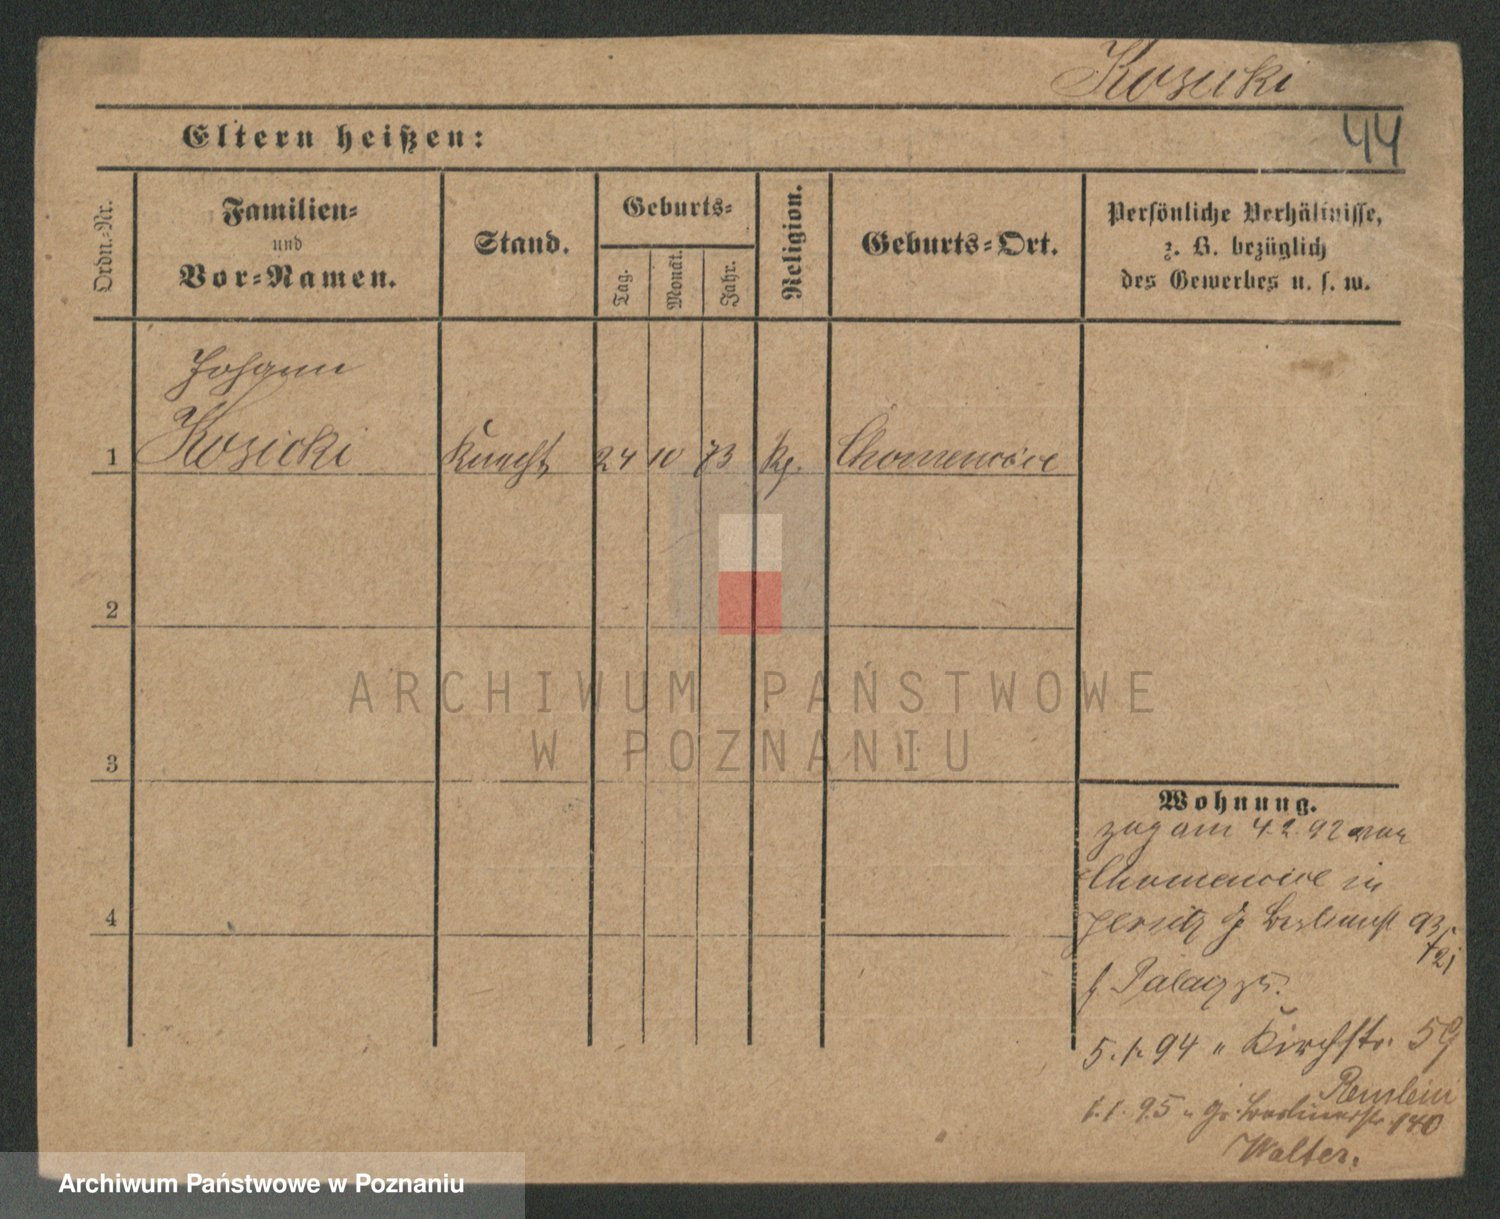 Kosicki
44
Eltern heißen:
Ordn.-Nr.
Familien-
und
Vor-Namen.
Stand.
Geburts-
Tag.
Monat.
Jahr.
Religion.
Geburts-Ort.
Persönliche Verhältnisse,
z. B. bezüglich
des Gewerbes u. s. w.
Johann
1 Kosicki Knecht 24 10 73 Chomencice
2
3
4
ARCHIWUM PAŃSTWOWE
W POZNANIU
Wohnung.
zog am 4.2.92 von
Chomencice in
Jersitz Gr Berlinerst 93
5.1.94 " Kirchstr. 59
1.1.95 " Gr. Berlinerstr 140
Walter.
Archiwum Państwowe w Poznaniu